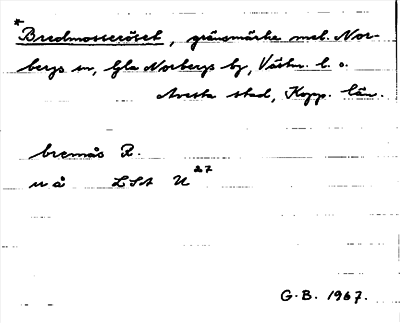 *Bredmosseröset, gränsmärke mel. Nor-
bergs sn, Gla Norbergs by, Västm. l. o.
Avesta stad, Kopp. län.
bremås R.
u å LSA U 27
G.B. 1967.